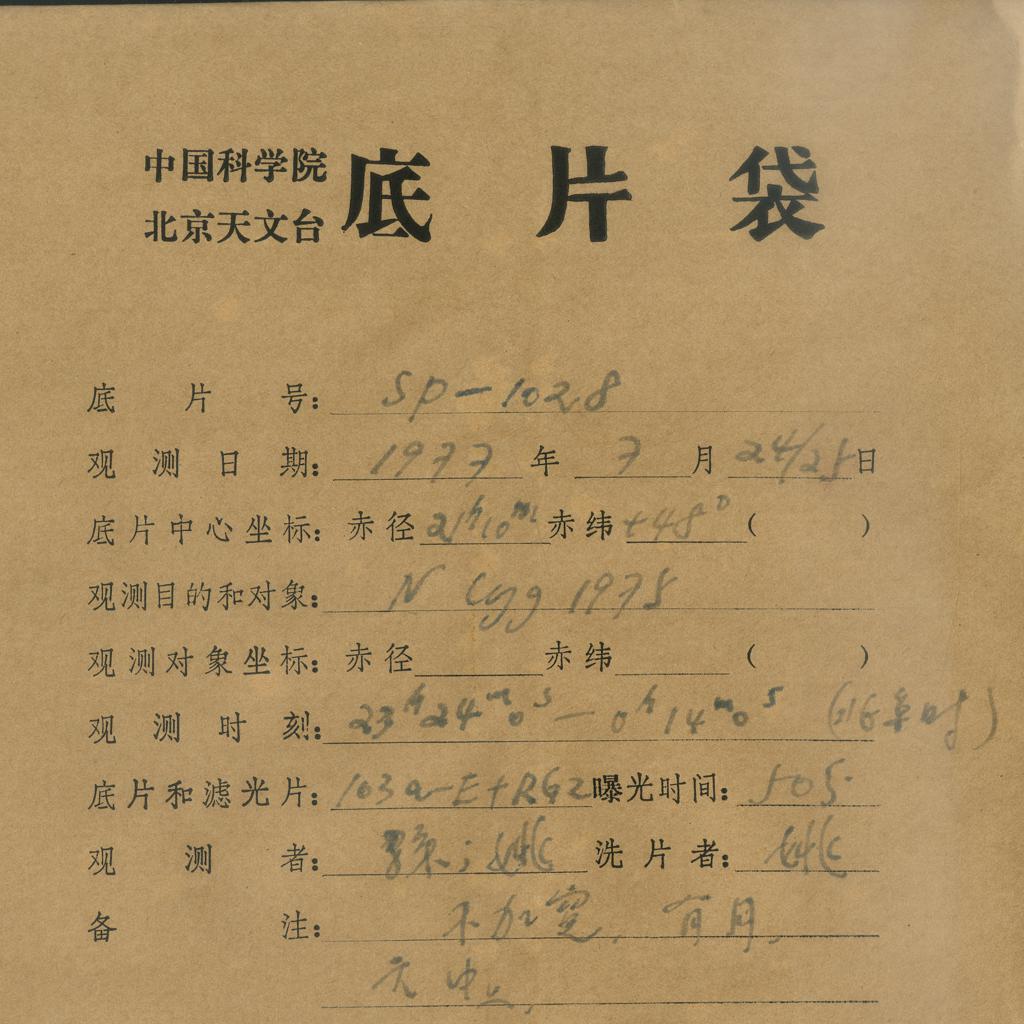 中国科学院
北京天文台
底片袋
底片号: SP-1028
观测日期: 1977年 7月 24/25日
底片中心坐标: 赤径 21h10m 赤纬 +48° ( )
观测目的和对象: N Cyg 1975
观测对象坐标: 赤径 赤纬 ( )
观测时刻: 23h24m0s — 0h14m0s
底片和滤光片: 103a-E+RG2 曝光时间:
观测者: 洗片者: 姚
备注: 不加宽, 有月,